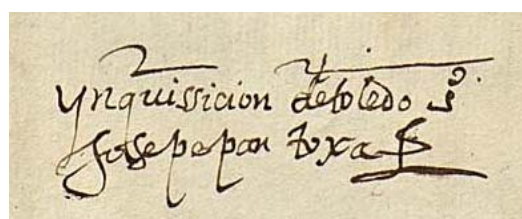 ynquissicion de toledo s.º
Josepe pantoxa